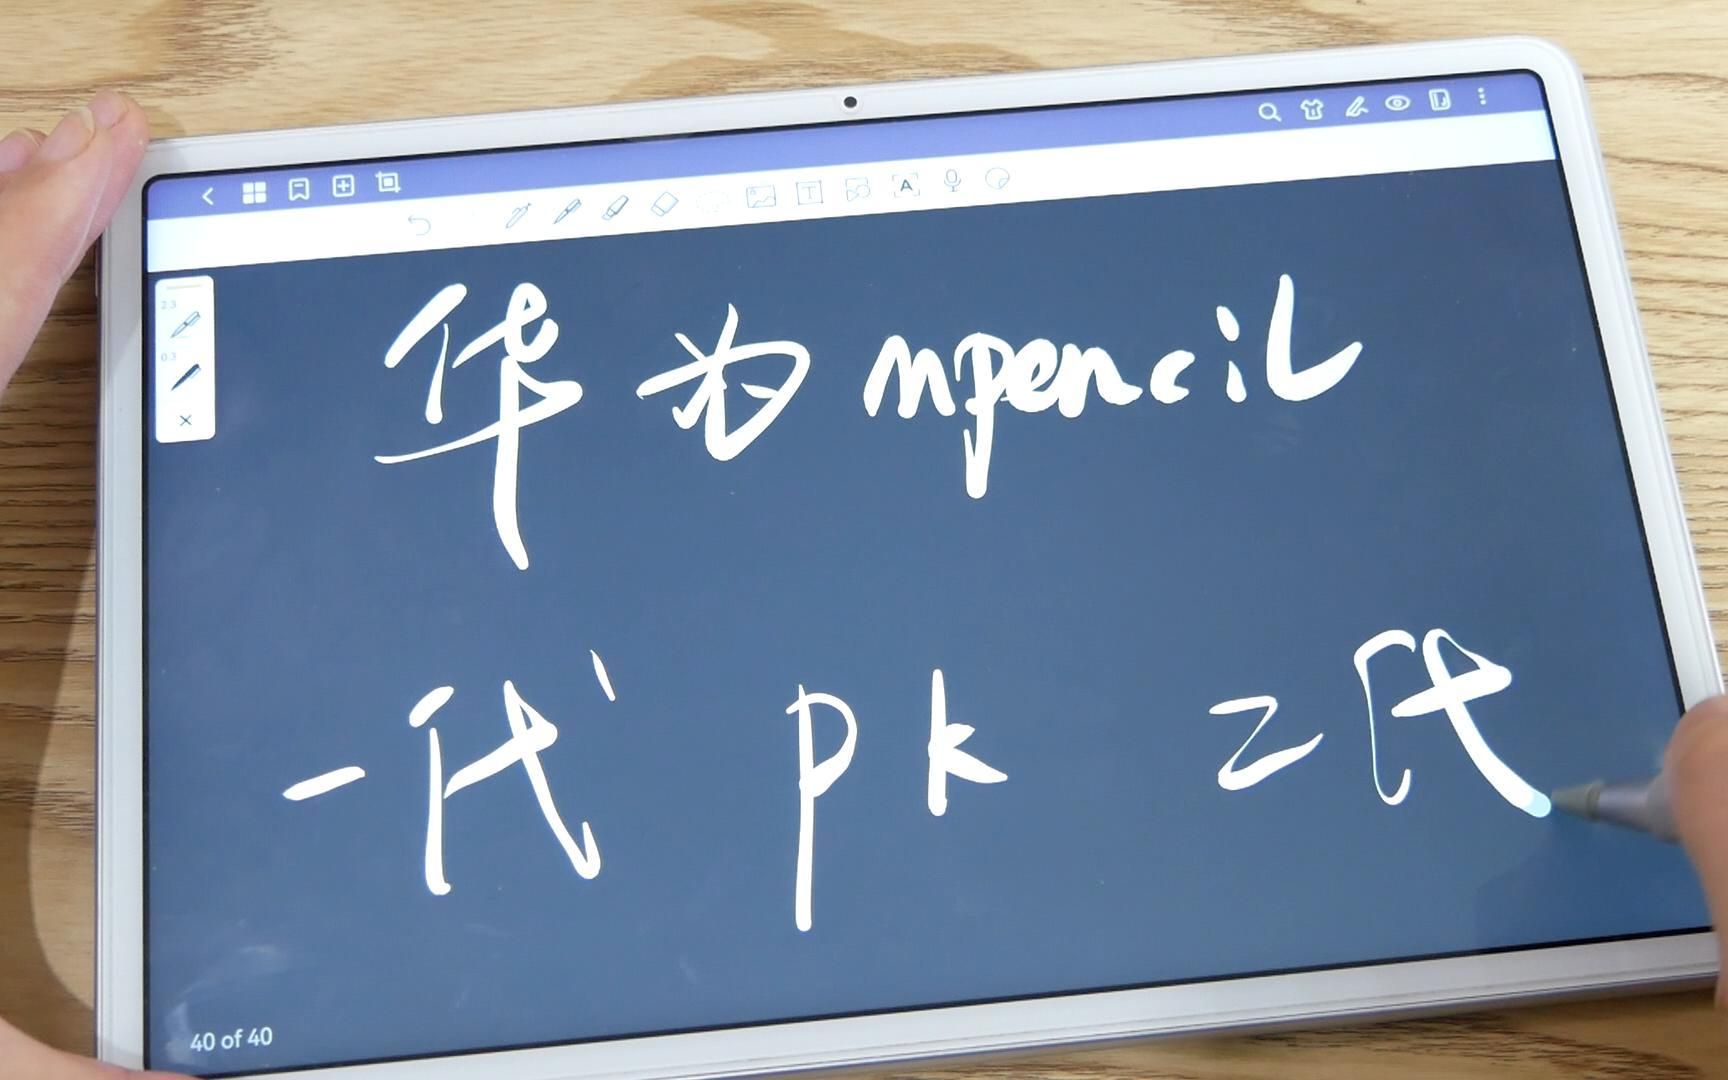 2.3
0.3
华为 mpencil
一代 pk 二代
40 of 40